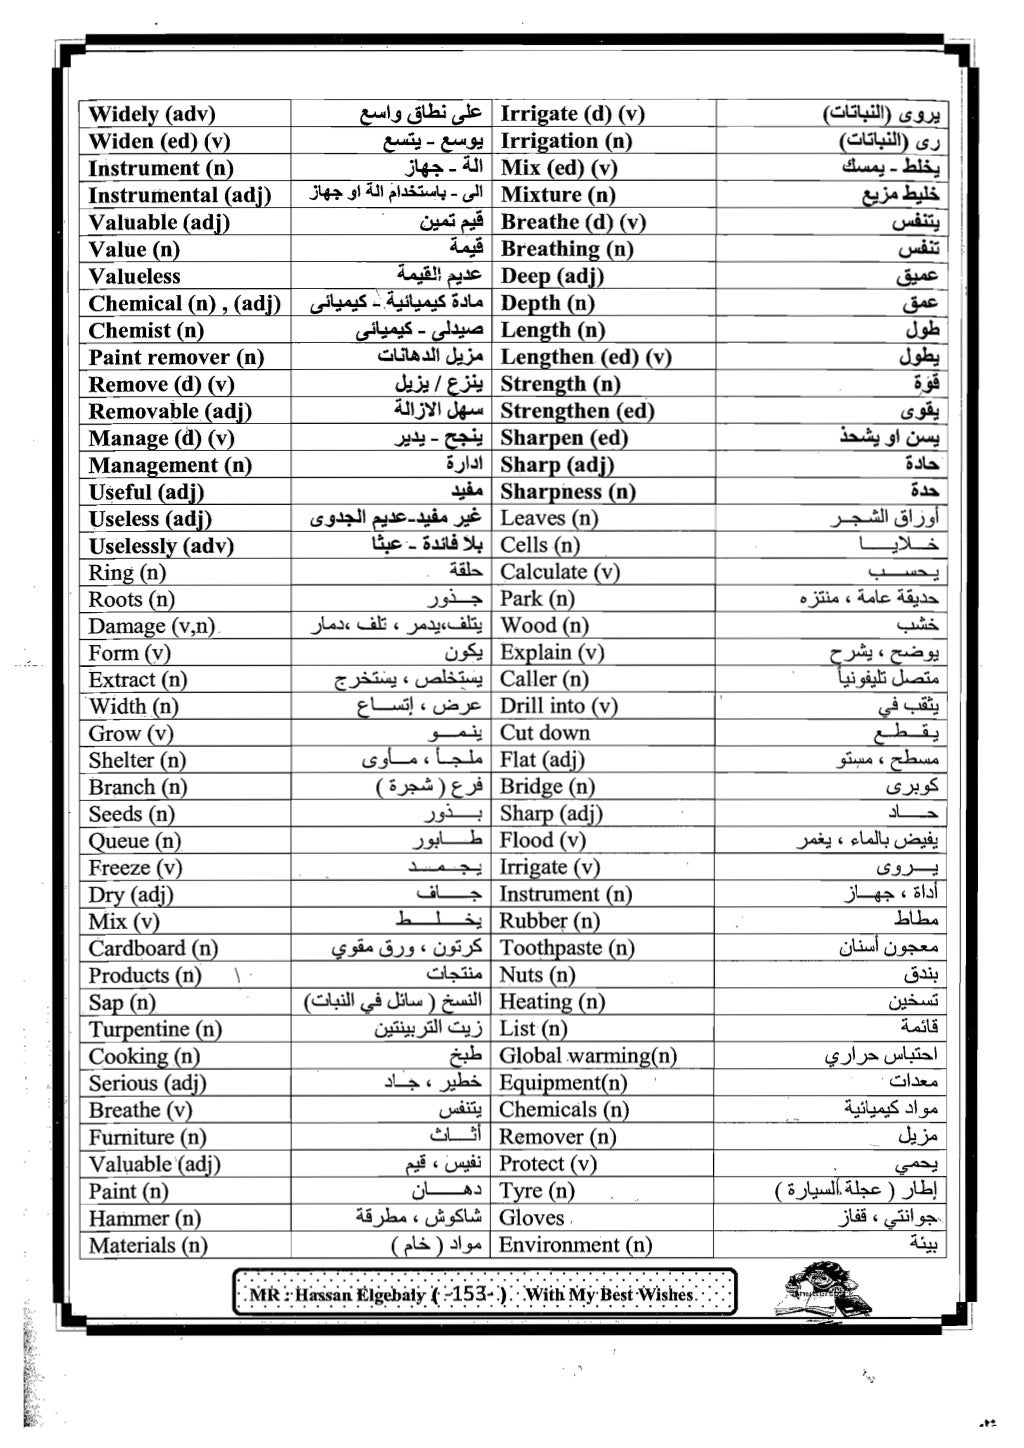 Widely (adv) على نطاق واسع Irrigate (d) (v) يروى (النباتات)
Widen (ed) (v) يوسع - يتسع Irrigation (n) رى (النباتات)
Instrument (n) الة - جهاز Mix (ed) (v) يخلط - يمسك
Instrumental (adj) الى - باستخدام الة او جهاز Mixture (n) خليط مزيع
Valuable (adj) قيم تمين Breathe (d) (v) يتنفس
Value (n) قيمة Breathing (n) تنفس
Valueless عديم القيمة Deep (adj) عميق
Chemical (n) , (adj) مادة كيميائية - كيميائى Depth (n) عمق
Chemist (n) صيدلى - كيميائى Length (n) طول
Paint remover (n) مزيل الدهانات Lengthen (ed) (v) يطول
Remove (d) (v) ينزع / يزيل Strength (n) قوة
Removable (adj) سهل الازالة Strengthen (ed) يقوى
Manage (d) (v) ينجح - يدير Sharpen (ed) يسن او يشحذ
Management (n) ادارة Sharp (adj) حادة
Useful (adj) مفيد Sharpness (n) حدة
Useless (adj) غير مفيد-عديم الجدوى Leaves (n) أوراق الشجر
Uselessly (adv) بلا فائدة - عبثا Cells (n) خلايا
Ring (n) حلقة Calculate (v) يحسب
Roots (n) جذور Park (n) حديقة عامة ، منتزه
Damage (v,n) يتلف،يدمر ، تلف ،دمار Wood (n) خشب
Form (v) يكون Explain (v) يوضح ، يشرح
Extract (n) يستخلص ، يستخرج Caller (n) متصل تليفونياً
Width (n) عرض ، إتساع Drill into (v) يثقب في
Grow (v) ينمو Cut down يقطع
Shelter (n) ملجأ ، مأوى Flat (adj) مسطح ، مستو
Branch (n) فرع ( شجرة ) Bridge (n) كوبرى
Seeds (n) بذور Sharp (adj) حاد
Queue (n) طابور Flood (v) يفيض بالماء ، يغمر
Freeze (v) يجمد Irrigate (v) يروى
Dry (adj) جاف Instrument (n) أداة ، جهاز
Mix (v) يخلط Rubber (n) مطاط
Cardboard (n) كرتون ، ورق مقوي Toothpaste (n) معجون أسنان
Products (n) منتجات Nuts (n) بندق
Sap (n) النسخ ( سائل في النبات) Heating (n) تسخين
Turpentine (n) زيت التربينتين List (n) قائمة
Cooking (n) طبخ Global warming(n) احتباس حراري
Serious (adj) خطير ، جاد Equipment(n) معدات
Breathe (v) يتنفس Chemicals (n) مواد كيميائية
Furniture (n) أثاث Remover (n) مزيل
Valuable (adj) نفيس ، قيم Protect (v) يحمي
Paint (n) دهان Tyre (n) إطار ( عجلة السيارة )
Hammer (n) شاكوش ، مطرقة Gloves جوانتي ، قفاز
Materials (n) مواد ( خام ) Environment (n) بيئة
MR : Hassan Elgebaly ( -153- ) With My Best Wishes